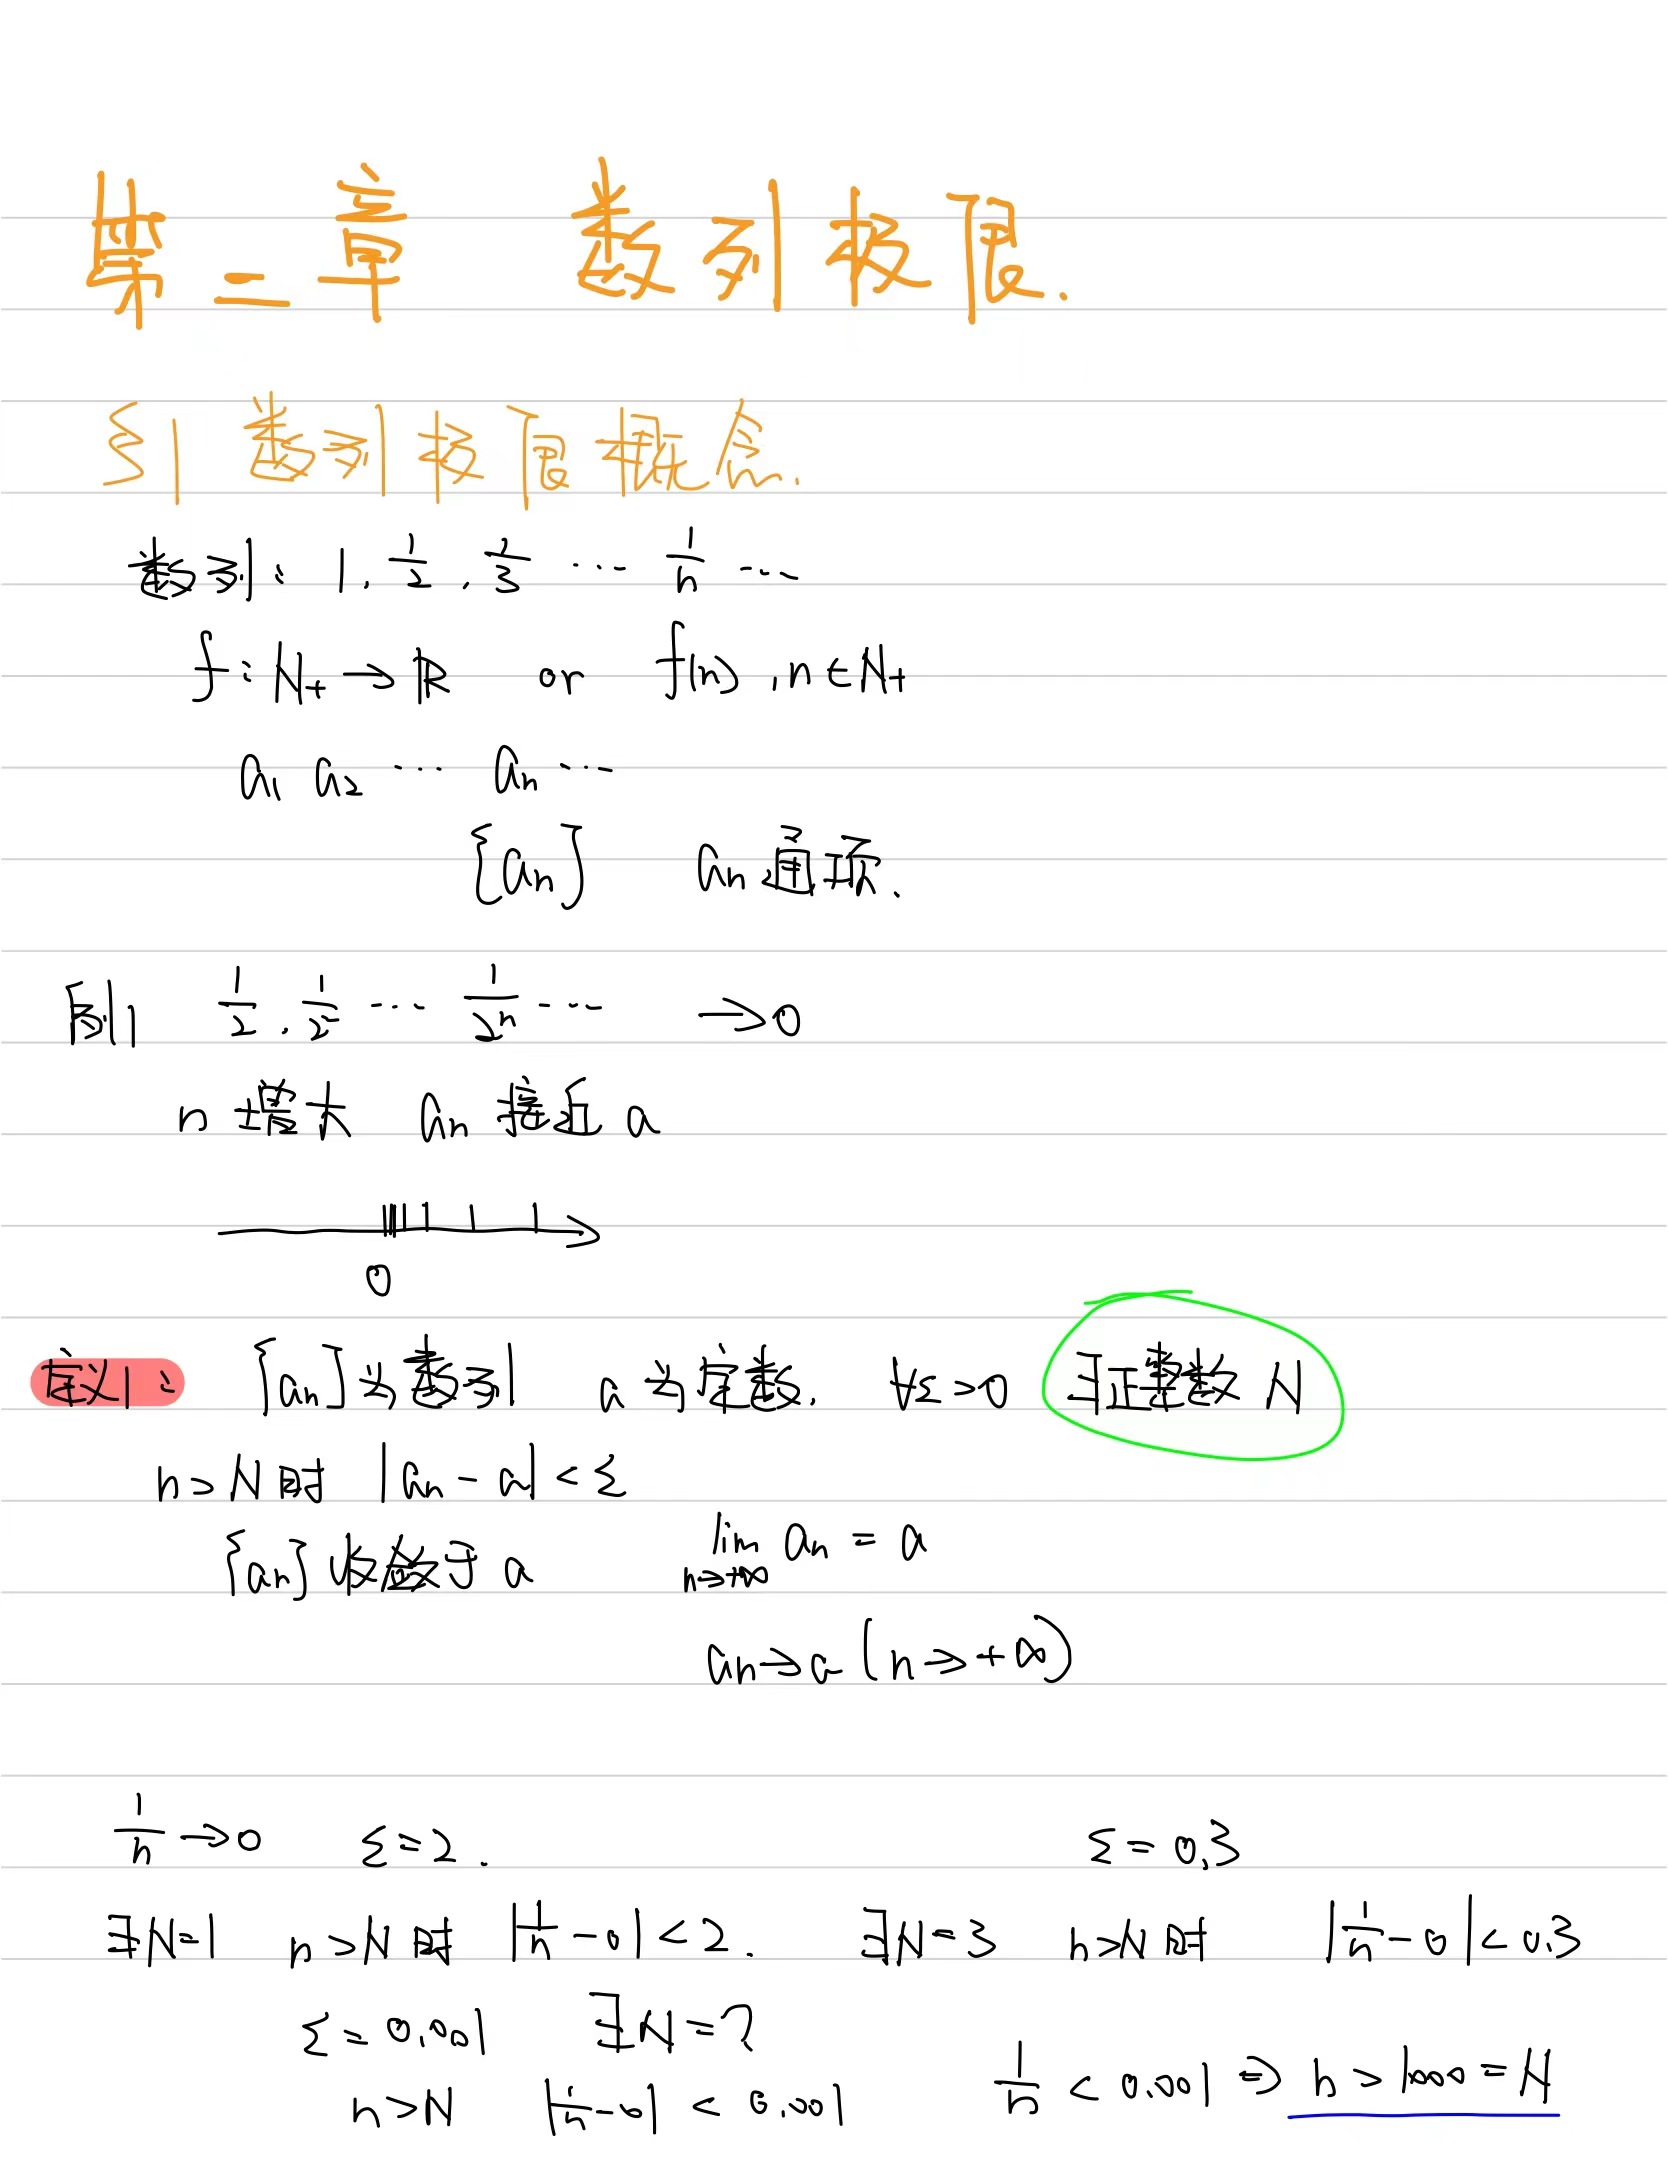 第二章 数列极限.
§1 数列极限概念.
数列: 1, 1/2, 1/3 ⋯ 1/n ⋯
f: N₊ → ℝ or f(n), n∈N₊
a₁ a₂ ⋯ aₙ ⋯
{aₙ} aₙ 通项.
例1 1/2, 1/2² ⋯ 1/2ⁿ ⋯ → 0
n 增大 aₙ 接近 a
0
定义1: {aₙ}为数列 a为定数, ∀ε>0 ∃正整数 N
n>N时 |aₙ - a| < ε
{aₙ}收敛于a lim n→+∞ aₙ = a
aₙ→a (n→+∞)
1/n → 0 ε=2. ε=0.3
∃N=1 n>N时 |1/n - 0| < 2. ∃N=3 n>N时 |1/n - 0| < 0.3
ε=0.001 ∃N=?
n>N |1/n - 0| < 0.001 1/n < 0.001 ⇒ n > 1000 = N